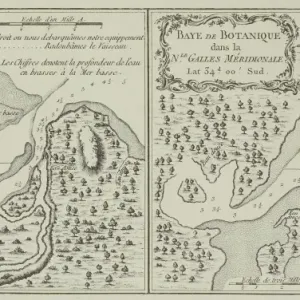 Echelle d'un Mille A.
droit ou nous debarquâmes notre equippement
Radoubâmes le Vaisseau.
Les Chiffres denotent la profondeur de l'eau
en brasses à la Mer basse.
BAYE DE BOTANIQUE
dans la
N.lle GALLES MÉRIDIONALE
Lat 34.d 00' Sud.
Echelle de trois